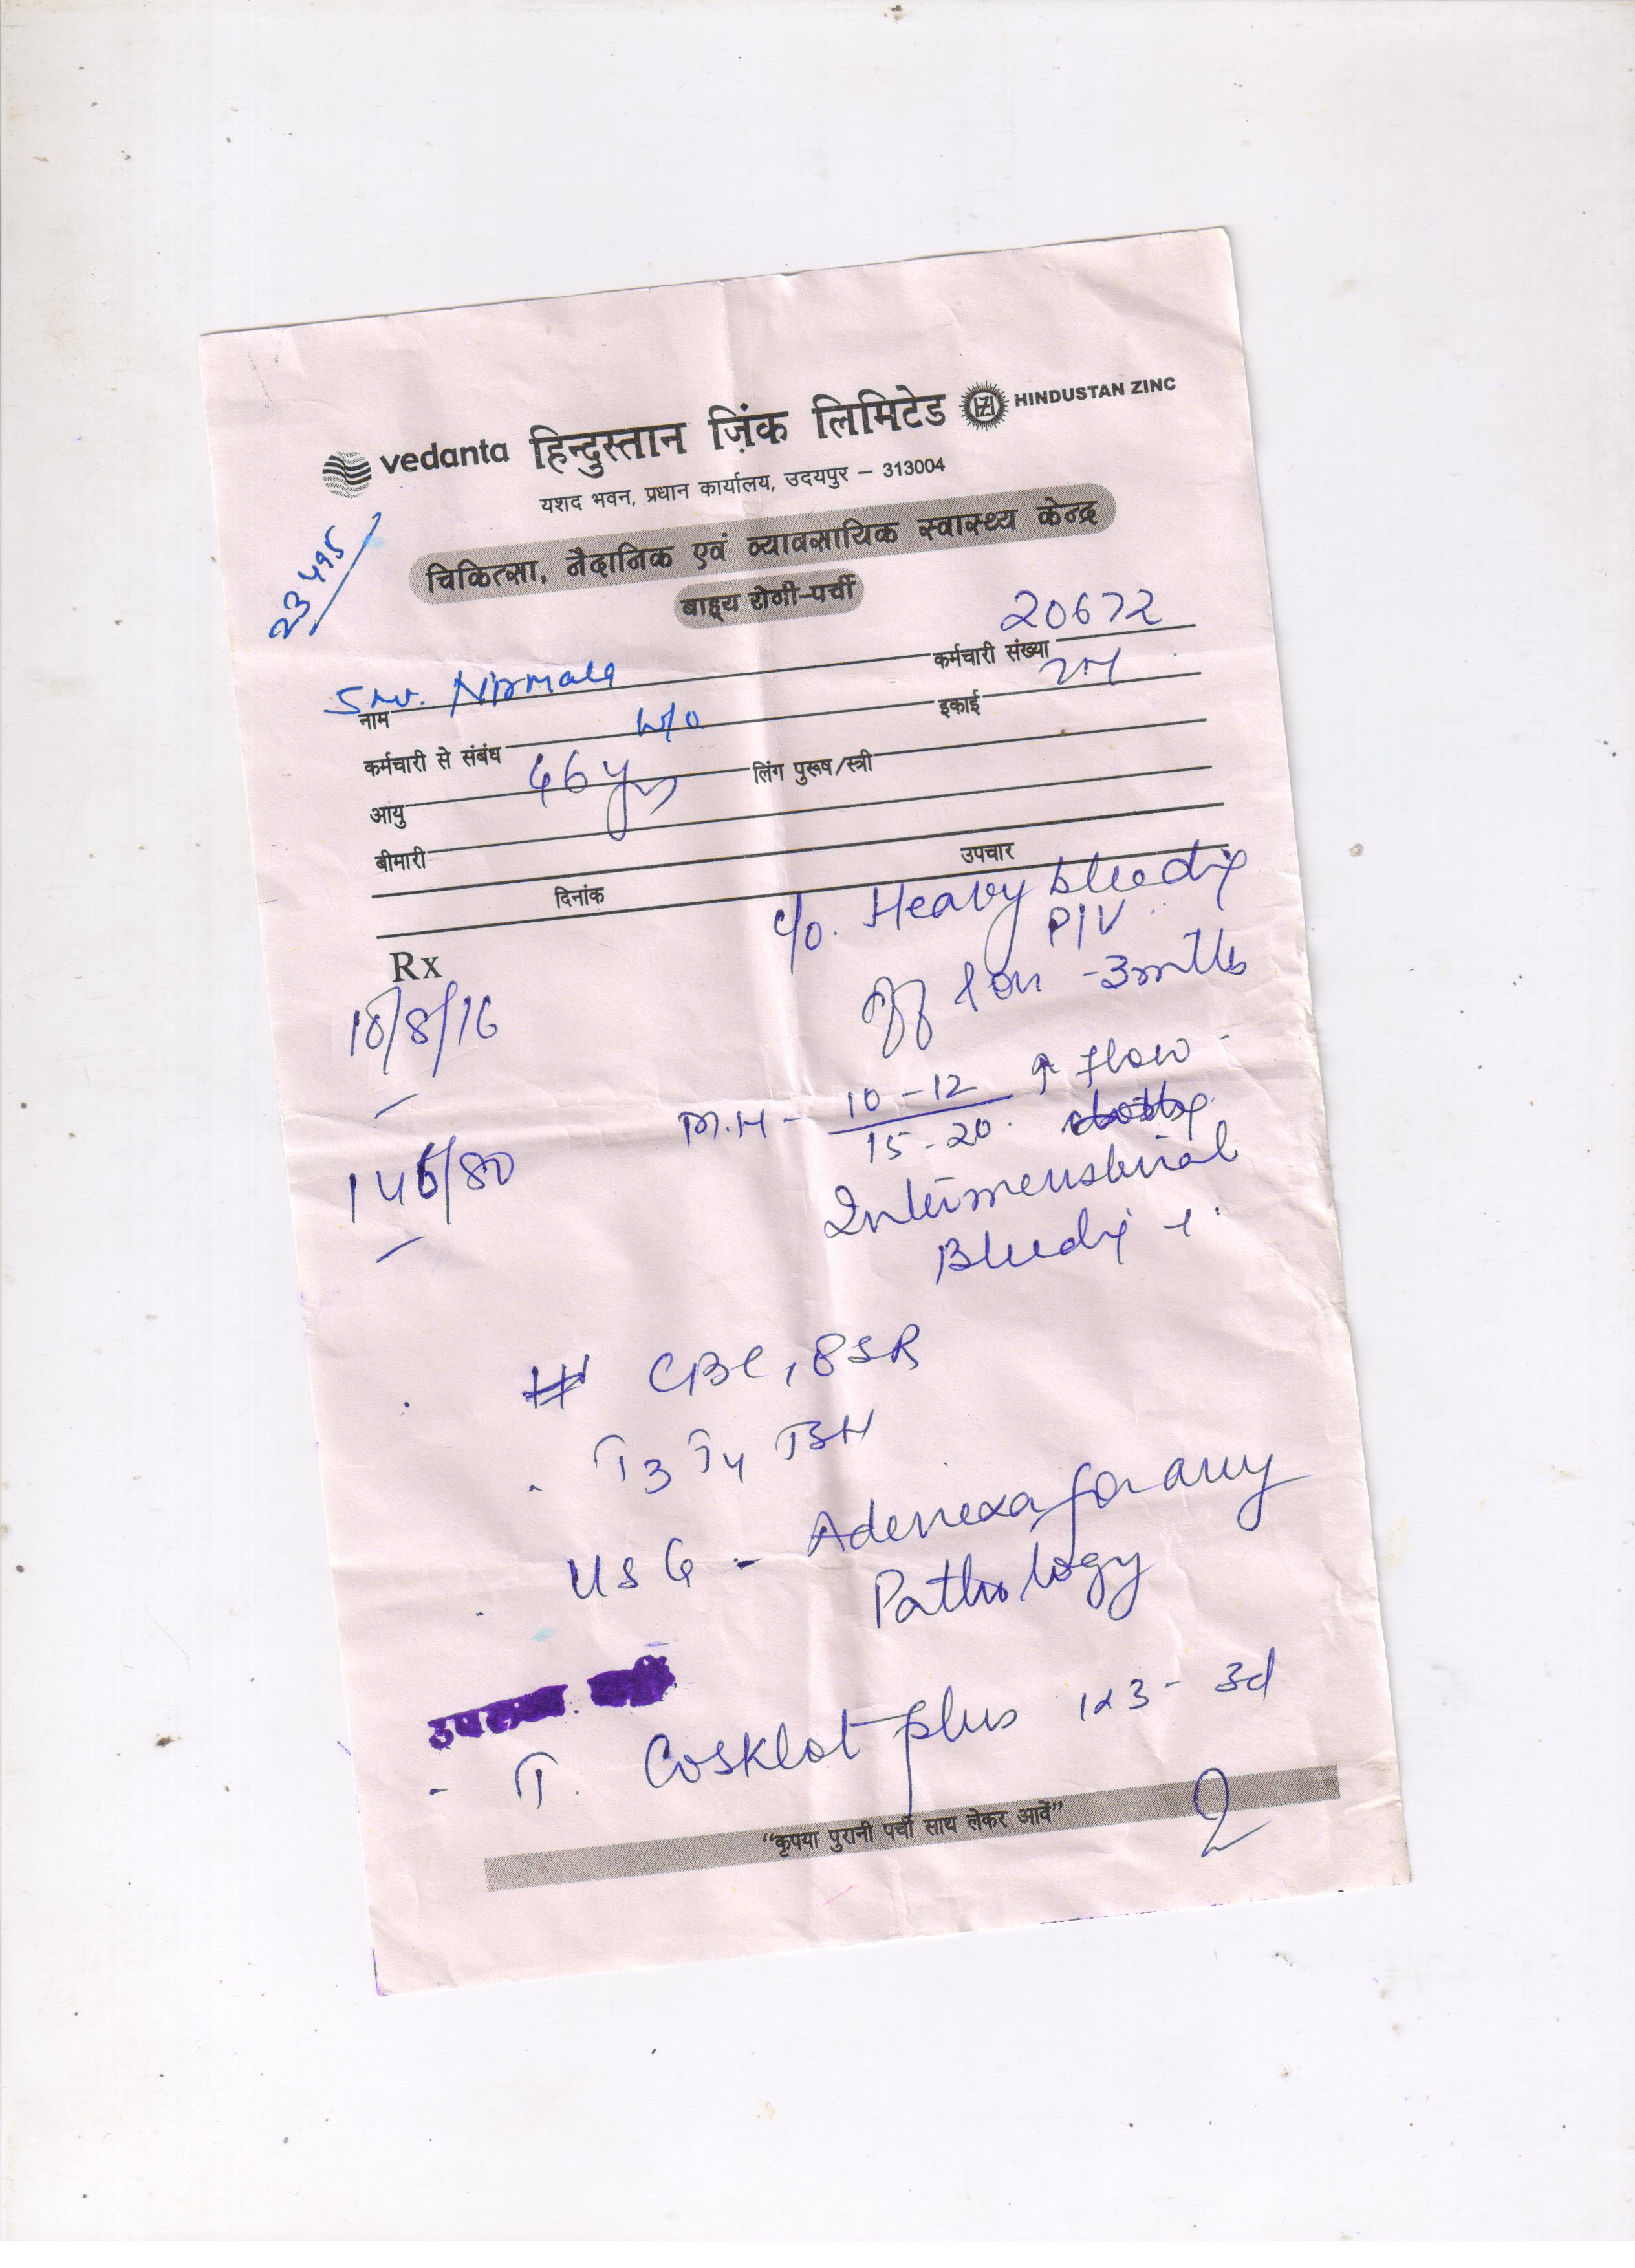 vedanta हिन्दुस्तान ज़िंक लिमिटेड HINDUSTAN ZINC
यशद भवन, प्रधान कार्यालय, उदयपुर – 313004
23495
चिकित्सा, नैदानिक एवं व्यावसायिक स्वास्थ्य केन्द्र
बाह्य रोगी-पर्ची
नाम Smt. Nirmala कर्मचारी संख्या 20672
कर्मचारी से संबंध W/o इकाई
आयु 46 yrs लिंग पुरूष/स्त्री
बीमारी
दिनांक उपचार
Rx c/o. Heavy bleeding
P/V
10/8/16 for - 3mths
M.H - 10-12 ↑ flow
15-20.
146/80 Intermenstrual
Bleeding +.
# CBC, BSR
T3 T4 TSH
USG - Adenexa for any
Pathology
उपलब्ध नहीं
- T. Cosklot plus 1x3 - 3d
“कृपया पुरानी पर्ची साथ लेकर आवें”